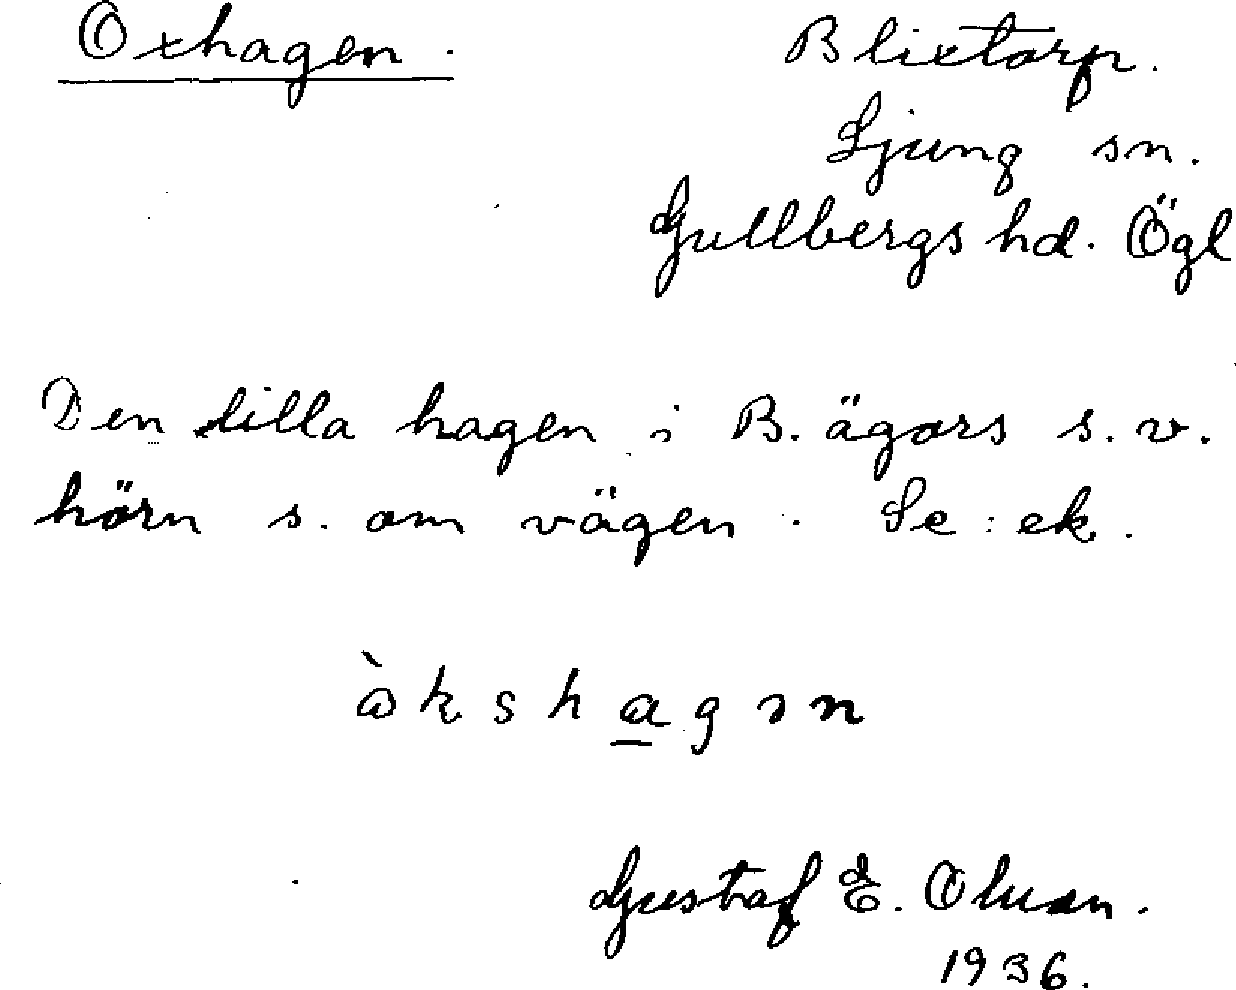 Oxhagen.
Blixtorp.
Ljung sn.
Gullbergs hd. Ögl
Den lilla hagen i B. ägors s.v.
hörn s. om vägen. Se: ek.
Gustaf E.
1936.